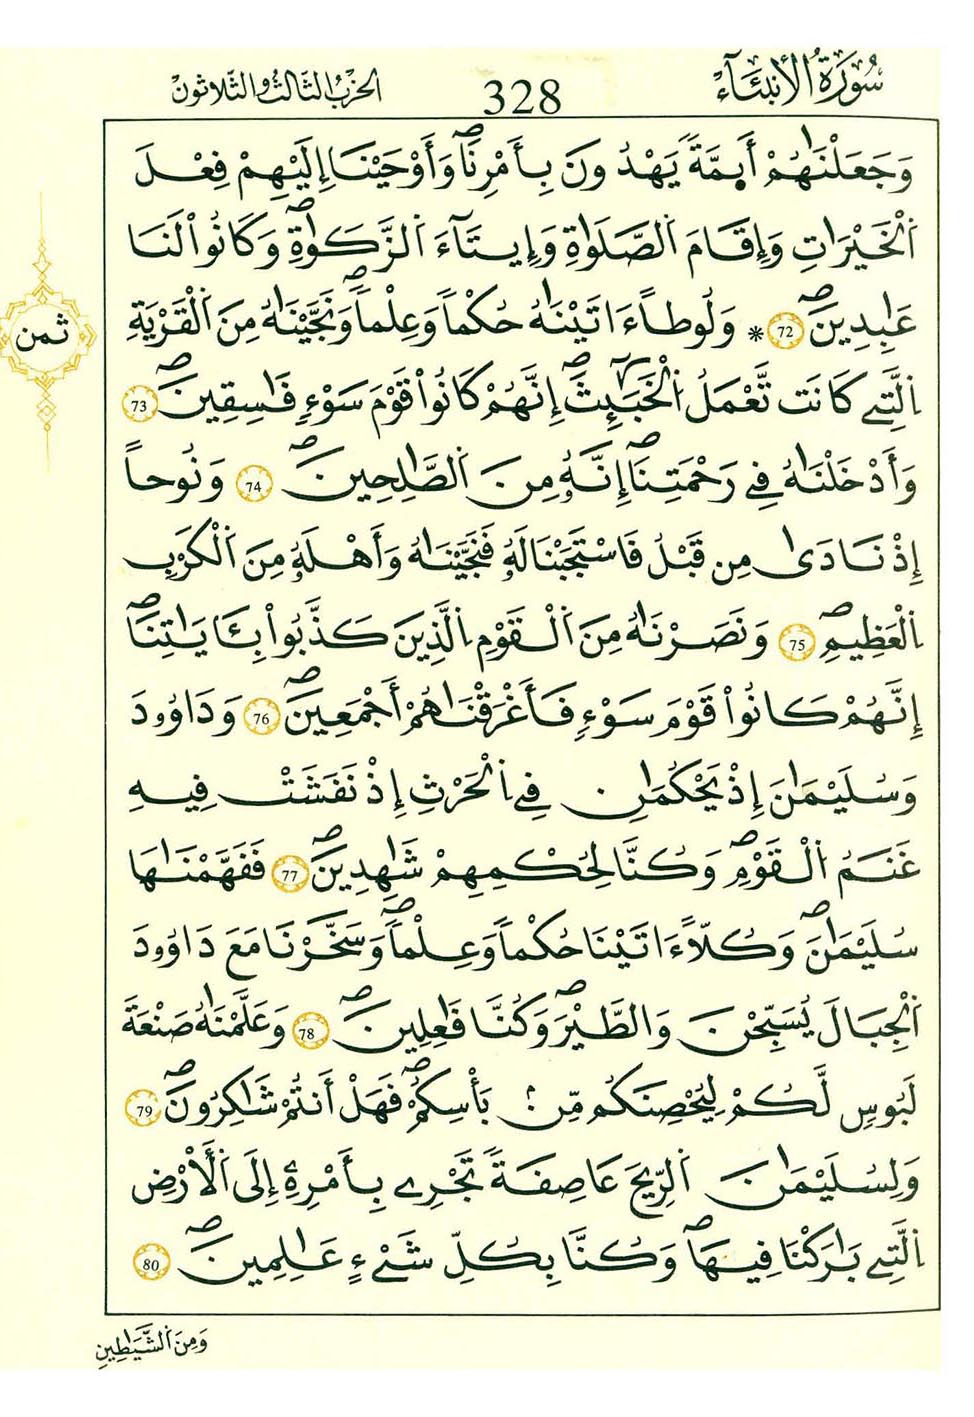 سُورَةُ الْأَنبِئَاءِ 328 الحِزْبُ الثَّالِثُ وَالثَّلَاثُونَ
وَجَعَلْنَٰهُمْ أَئِمَّةً يَهْدُونَ بِأَمْرِنَا وَأَوْحَيْنَا إِلَيْهِمْ فِعْلَ
اَلْخَيْرَٰتِ وَإِقَامَ اَلصَّلَوٰةِ وَإِيتَآءَ اَلزَّكَوٰةِ وَكَانُواْ لَنَا
عَٰبِدِينَ 72 * وَلُوطاً ءَاتَيْنَٰهُ حُكْماً وَعِلْماً وَنَجَّيْنَٰهُ مِنَ اَلْقَرْيَةِ
اِلَّتِے كَانَت تَّعْمَلُ اُلْخَبَٰٓئِثَ إِنَّهُمْ كَانُواْ قَوْمَ سَوْءٍ فَٰسِقِينَ 73
وَأَدْخَلْنَٰهُ فِے رَحْمَتِنَا إِنَّهُۥ مِنَ اَلصَّٰلِحِينَ 74 وَنُوحاً
إِذْ نَادَىٰ مِن قَبْلُ فَاسْتَجَبْنَا لَهُۥ فَنَجَّيْنَٰهُ وَأَهْلَهُۥ مِنَ اَلْكَرْبِ
اِلْعَظِيمِ 75 وَنَصَرْنَٰهُ مِنَ اَلْقَوْمِ اِلَّذِينَ كَذَّبُواْ بِـَٔايَٰتِنَا
إِنَّهُمْ كَانُواْ قَوْمَ سَوْءٍ فَأَغْرَقْنَٰهُمْ أَجْمَعِينَ 76 وَدَاوُۥدَ
وَسُلَيْمَٰنَ إِذْ يَحْكُمَٰنِ فِے اِلْحَرْثِ إِذْ نَفَشَتْ فِيهِ
غَنَمُ اُلْقَوْمِ وَكُنَّا لِحُكْمِهِمْ شَٰهِدِينَ 77 فَفَهَّمْنَٰهَا
سُلَيْمَٰنَ وَكُلّاً ءَاتَيْنَا حُكْماً وَعِلْماً وَسَخَّرْنَا مَعَ دَاوُۥدَ
اَلْجِبَالَ يُسَبِّحْنَ وَالطَّيْرَ وَكُنَّا فَٰعِلِينَ 78 وَعَلَّمْنَٰهُ صَنْعَةَ
لَبُوسٍ لَّكُمْ لِيُحْصِنَكُم مِّنۢ بَأْسِكُمْ فَهَلْ أَنتُمْ شَٰكِرُونَ 79
وَلِسُلَيْمَٰنَ اَلرِّيحَ عَاصِفَةً تَجْرِے بِأَمْرِهِۦٓ إِلَى اَلْأَرْضِ
اِلَّتِے بَٰرَكْنَا فِيهَا وَكُنَّا بِكُلِّ شَےْءٍ عَٰلِمِينَ 80
وَمِنَ اَلشَّيَٰطِينِ
ثمن